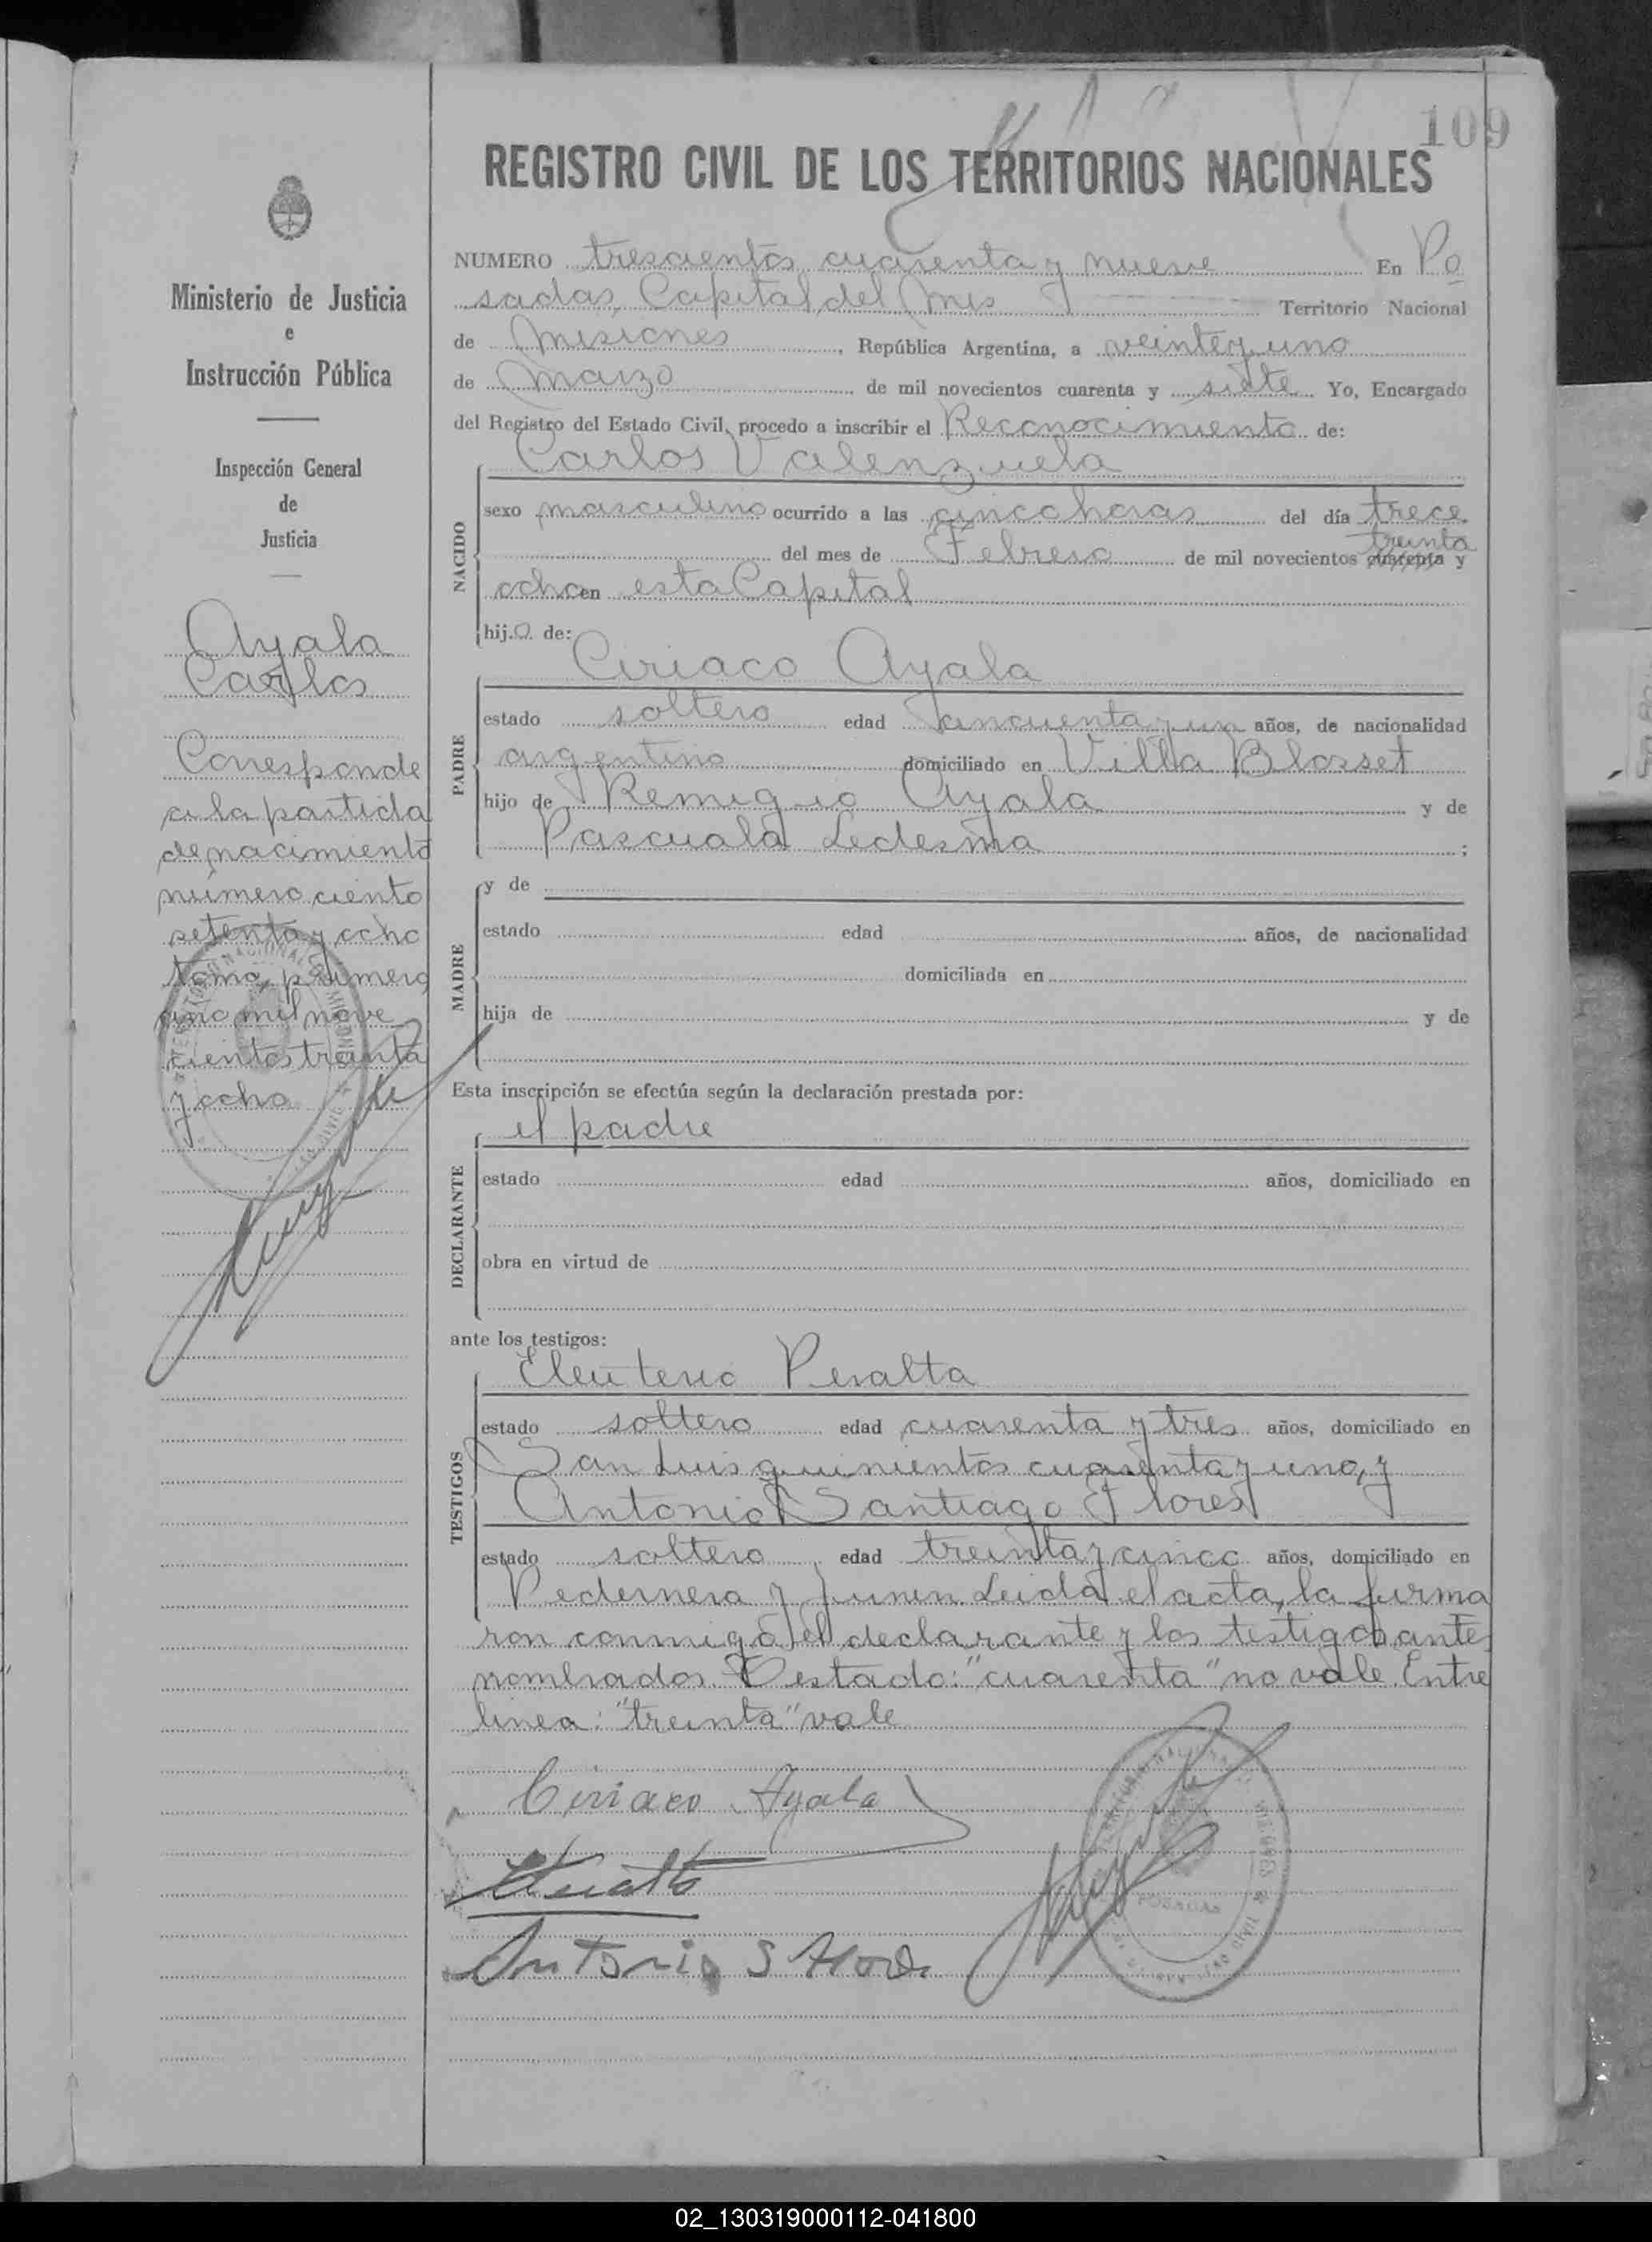 109
REGISTRO CIVIL DE LOS TERRITORIOS NACIONALES
NUMERO trescientos cuarenta y nueve En Po
sadas, Capital del Mis Territorio Nacional
de Misiones, República Argentina, a veinte y uno
de Marzo de mil novecientos cuarenta y siete Yo, Encargado
del Registro del Estado Civil, procedo a inscribir el Reconocimiento de:
Carlos Valenzuela
NACIDO
sexo masculino ocurrido a las cinco horas del día trece
treinta
del mes de Febrero de mil novecientos cuarenta y
ocho en esta Capital
hijo de:
Ciriaco Ayala
PADRE
estado soltero edad cincuenta y un años, de nacionalidad
argentino domiciliado en Villa Blosset
hijo de Remigio Ayala y de
Pascuala Ledesma ;
MADRE
y de
estado edad años, de nacionalidad
domiciliada en
hija de y de
Esta inscripción se efectúa según la declaración prestada por:
el padre
DECLARANTE
estado edad años, domiciliado en
obra en virtud de
ante los testigos:
Eleuterio Peralta
TESTIGOS
estado soltero edad cuarenta y tres años, domiciliado en
San Luis quinientos cuarenta y uno, y
Antonio Santiago Flores
estado soltero edad treinta y cinco años, domiciliado en
Pedernera y Junin. Leida el acta, la firma
ron conmigo el declarante y los testigos antes
nombrados. Testado: "cuarenta" no vale. Entre
linea: "treinta" vale
Ciriaco Ayala
Antonio S Flores
POSADAS
Ministerio de Justicia
e
Instrucción Pública
Inspección General
de
Justicia
Ayala
Carlos
Corresponde
a la partida
de nacimiento
número ciento
setenta y ocho
tomo primero
año mil nove
cientos treinta
y ocho
02_130319000112-041800